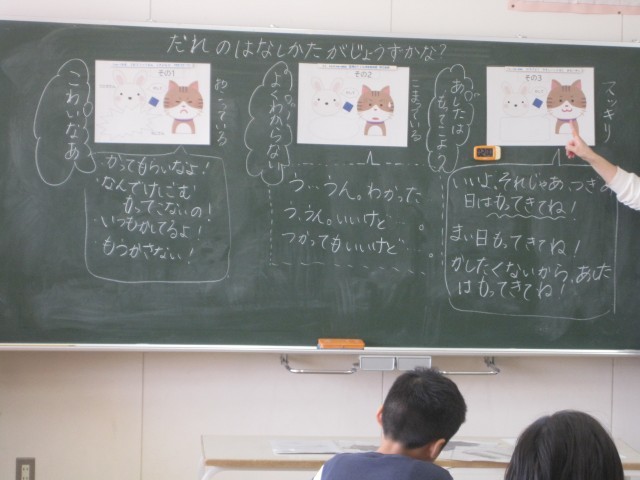 だれのはなしかたがじょうずかな?
その1
こわいなあ
おこっている
かってもらいなよ!
なんでけしごむ
もってこないの!
いつもかしてるよ!
もうかさない!
その2
よくわからない
こまっている
う…うん。わかった
う、うん。いいけど…。
つかってもいいけど…。
その3
あしたは
もってこよう
スッキリ
いいよ、それじゃあ、つぎの
日はもってきてね!
まい日もってきてね!
かしたくないから、あした
はもってきてね!